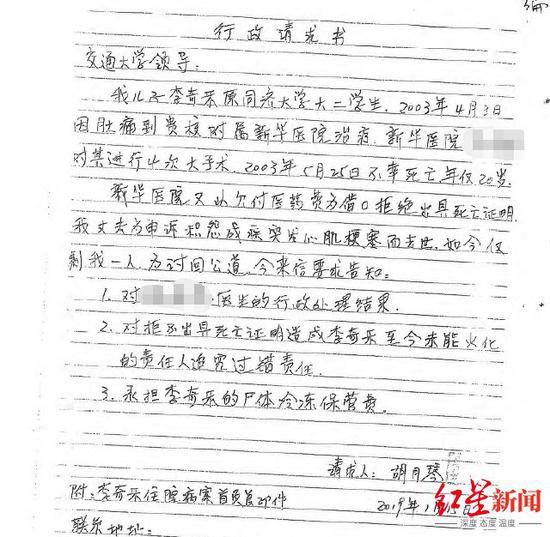 行政请求书
交通大学领导:
我儿子李奇乐原同济大学大二学生,2003年4月3日
因肚痛到贵校附属新华医院治病,新华医院
对其进行4次大手术,2003年5月25日不幸死亡年仅20岁.
新华医院又以欠付医药费为借口拒绝出具死亡证明,
我丈夫为申诉积怨成疾突发心肌梗塞而去世,如今仅
剩我一人,为讨回公道,今来信要求告知:
1. 对 医生的行政处理结果.
2. 对拒不出具死亡证明造成李奇乐至今未能火化
的责任人追究过错责任.
3. 承担李奇乐的尸体冷冻保管费.
请求人: 胡月琴
附:李奇乐住院病案首页复印件
2019年1月
联系地址:
红星新闻
深度 态度 温度